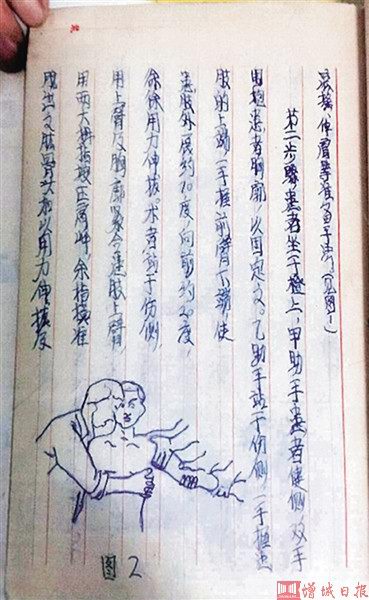 伸肩等准备手法(见图1)
第二步骤患者坐于櫈上,甲助手患者健侧,双手
围抱患者胸廓,以固定之。乙助手站于伤侧,一手握患
肢的上踝,一手握前臂下端,使
患肢外展约70度,向前约20度,
徐徐用力伸拔。术者前于伤侧,
用上臂及胸廓紧夹患肢上臂,
用两大拇指按正肩峰,余指按准
脱出之肱骨头部以用力伸拔及
图2
增城日报